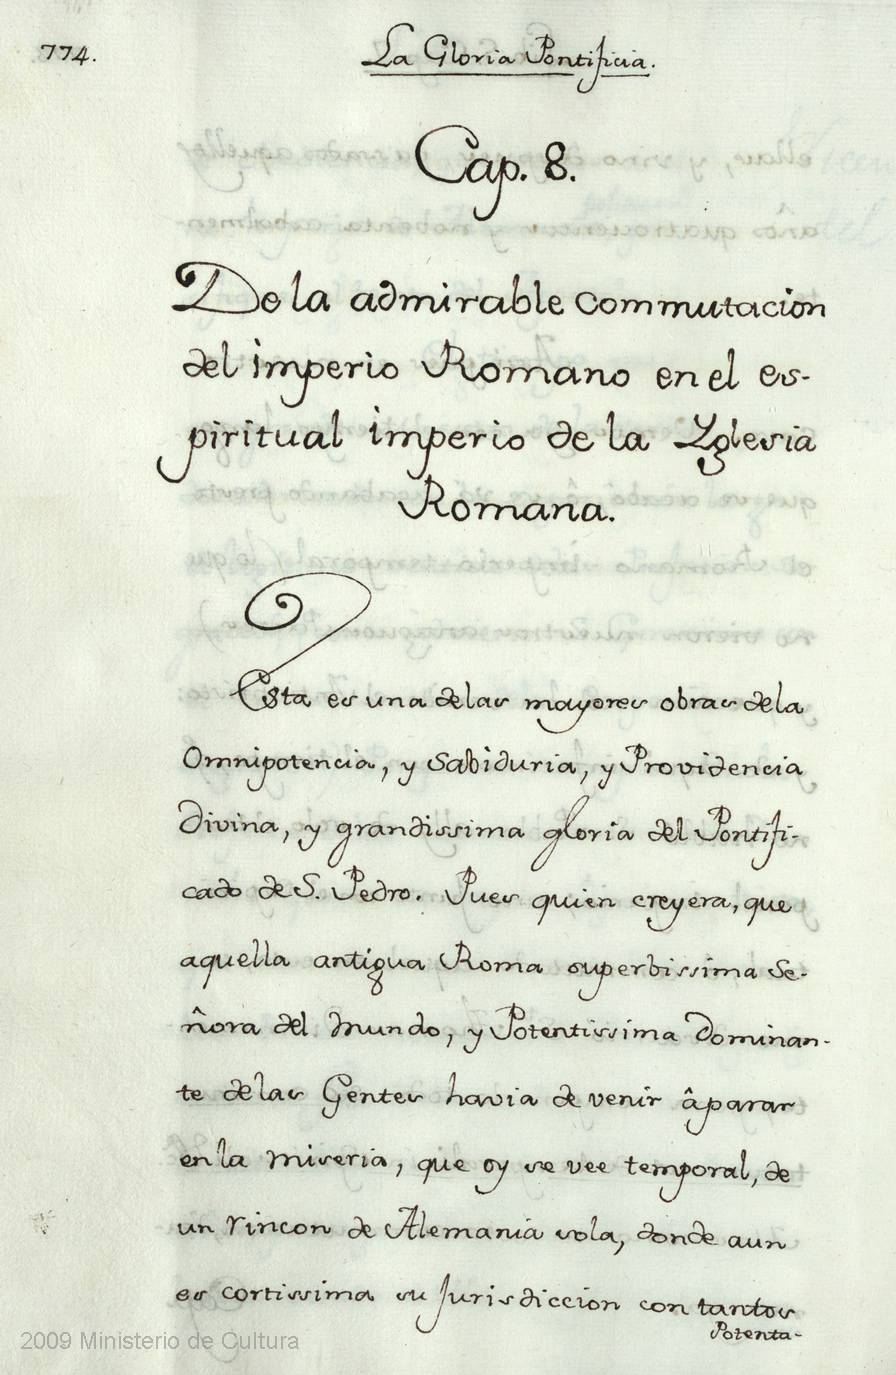 774.
La Gloria Pontificia.
Cap. 8.
De la admirable commutacion
del imperio Romano en el es-
piritual imperio de la Yglesia
Romana.
Esta es una de las mayores obras de la
Omnipotencia, y Sabiduria, y Providencia
divina, y grandissima gloria del Pontifi-
cado de S. Pedro. Pues quien creyera, que
aquella antigua Roma superbissima Se-
ñora del Mundo, y Potentissima Dominan-
te de las Gentes havia de venir â parar
en la miseria, que oy se vee temporal, de
un rincon de Alemania sola, donde aun
es cortissima su Jurisdiccion con tantos
Potenta-
2009 Ministerio de Cultura